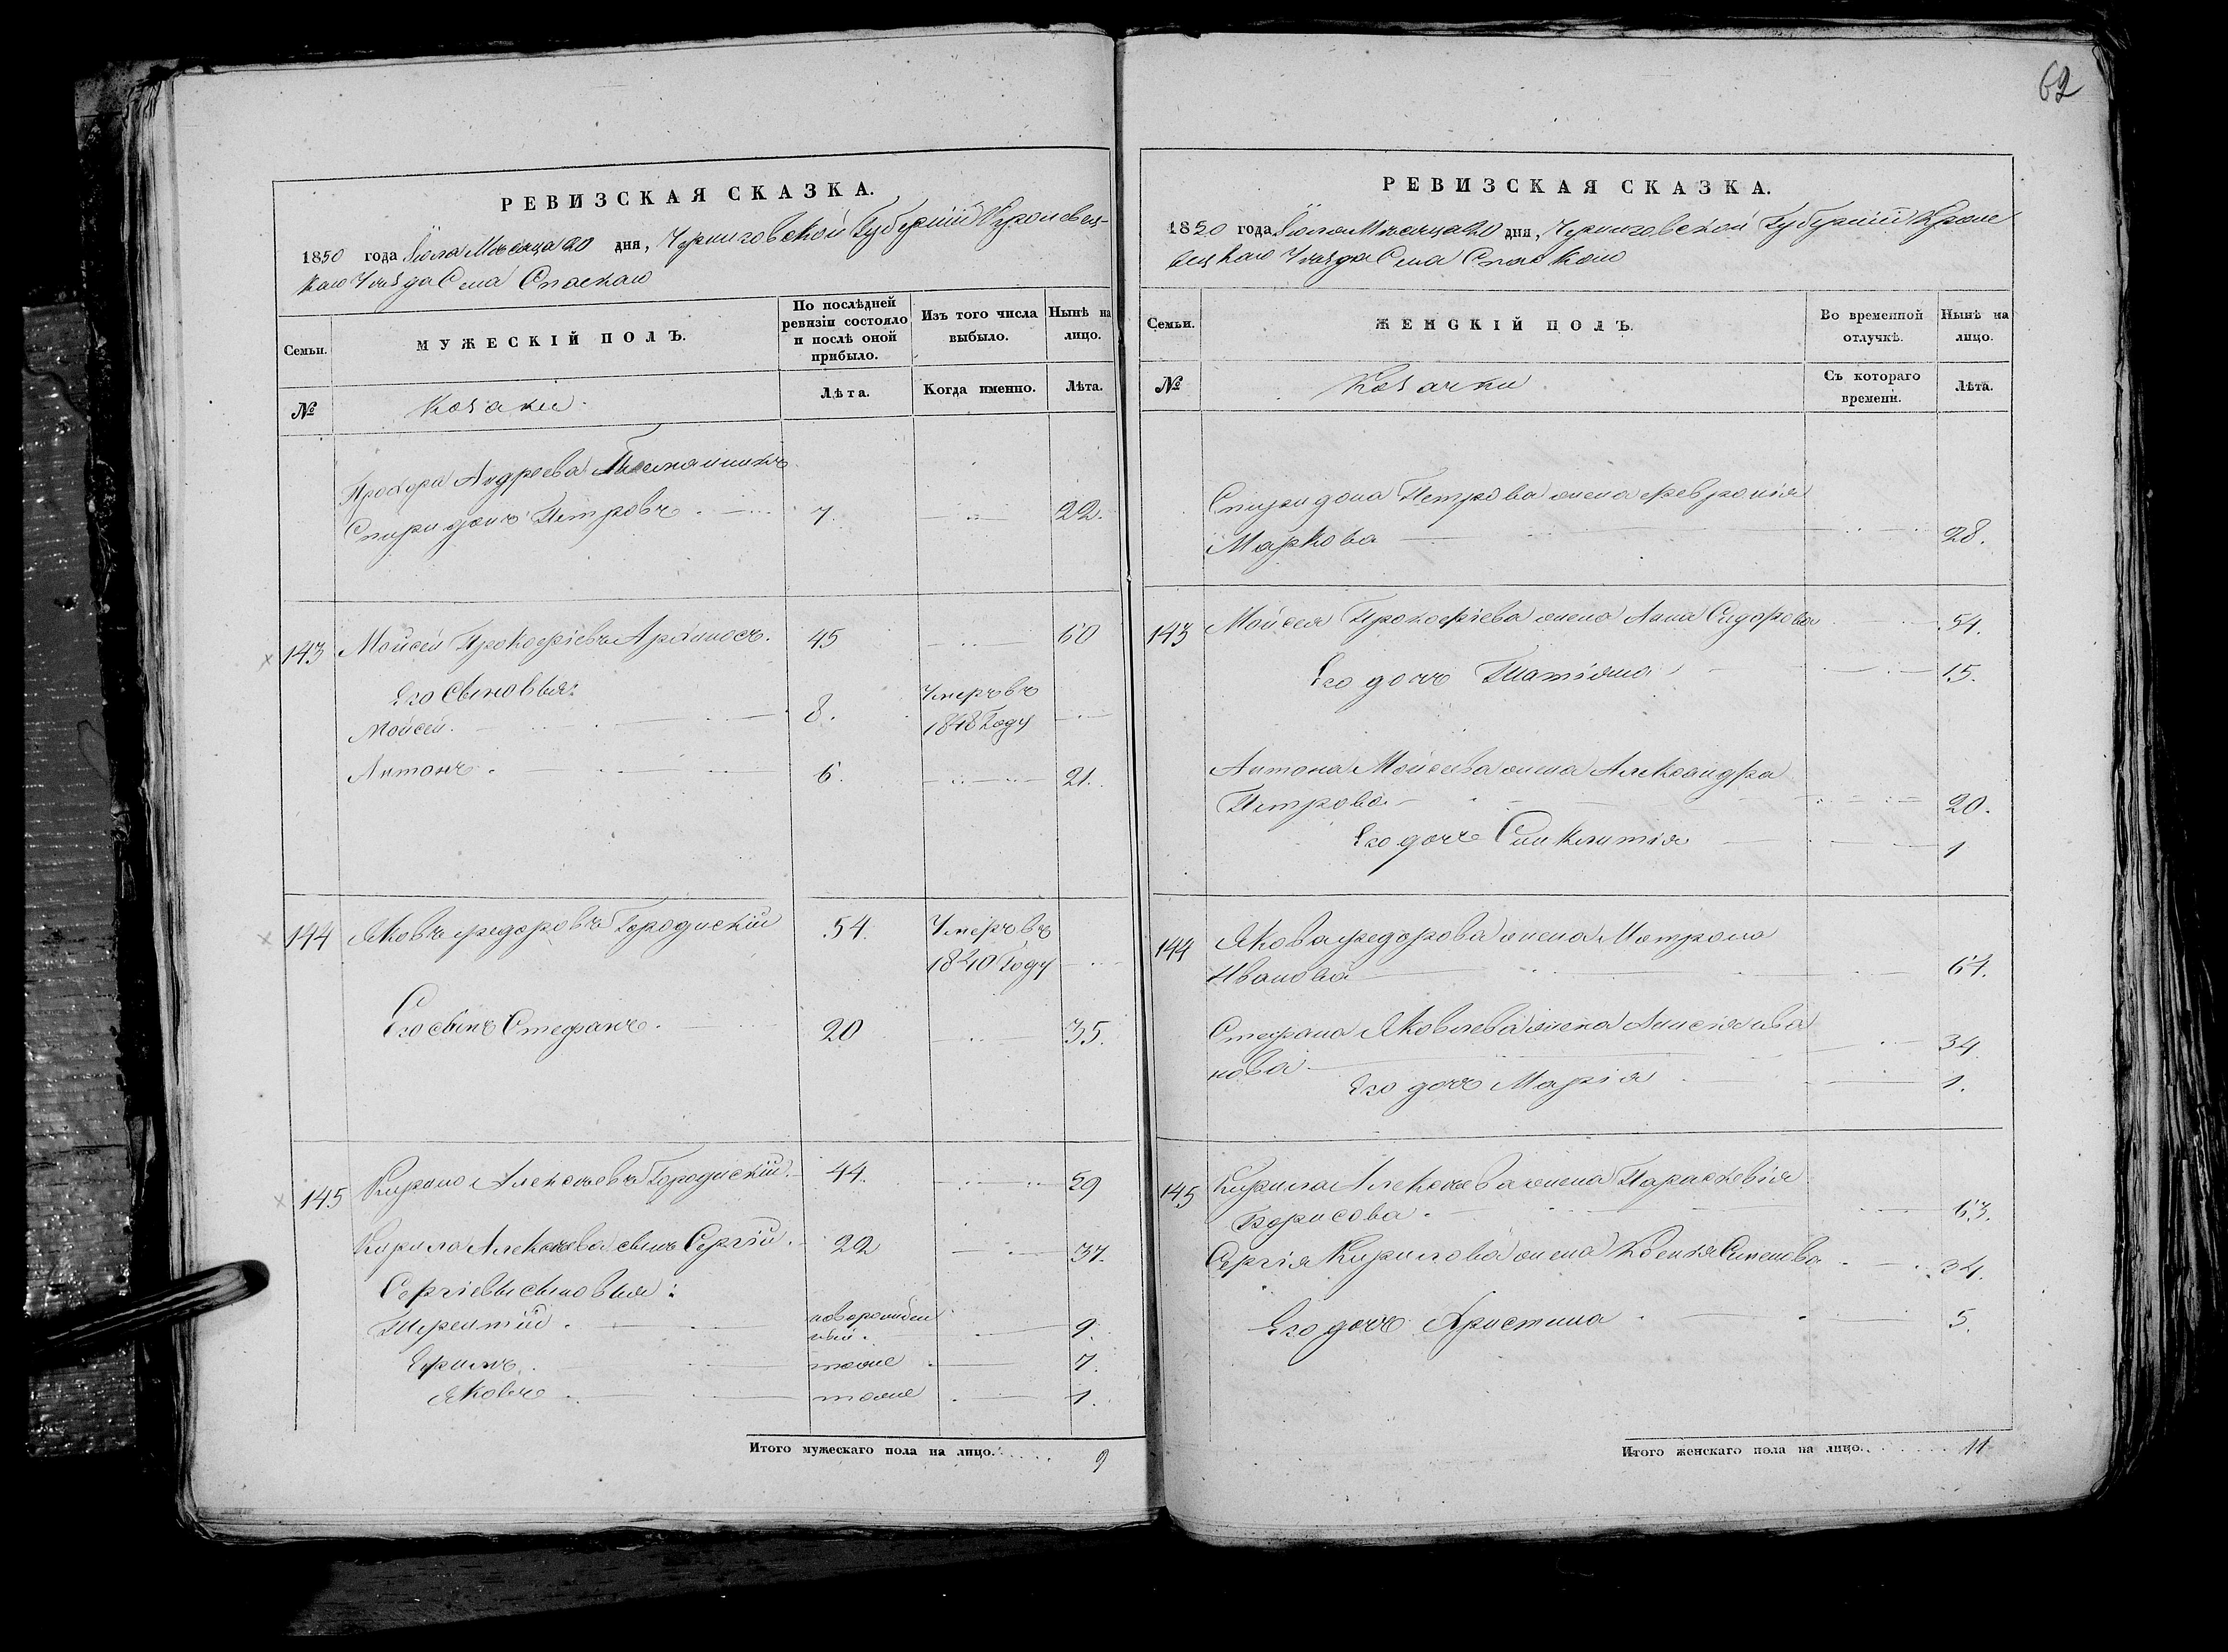 62
РЕВИЗСКАЯ СКАЗКА.
1850 года Іюля Месяца 20 дня, Черниговской Губерніи Кролевец-
каго Уѣзда Села Спаскаго
Семьи.
МУЖЕСКІЙ ПОЛЪ.
По послѣдней
ревизіи состояло
и послѣ оной
прибыло.
Изъ того числа
выбыло.
Нынѣ на
лицо.
№
Козаки
Лѣта.
Когда именно.
Лѣта.
Прохора Андреева Племянникъ
Спиридонъ Петровъ 7. 22.
143 Мойсей Прокофіевъ Архипосъ. 45 60
Его Сыновья:
Мойсей. 8. Умеръ въ
1848 Году
Антонъ. 6. 21.
144 Яковъ Федоровъ Городискій 54. Умеръ въ
1840 Году
Его сынъ Стефанъ. 20 35.
145 Кирило Алексѣевъ Городискій. 44. 59
Кирила Алексѣева сынъ Сергій. 22 37.
Сергіевы сыновья:
Терентій. новорожден
ный. 9.
Ефимъ. тоже 7.
Яковъ. тоже 1.
Итого мужескаго пола на лицо. 9
РЕВИЗСКАЯ СКАЗКА.
1850 года Іюля Месяца 20 дня, Черниговской Губерніи Кроле
вецкаго Уѣзда Села Спаскаго
Семьи.
ЖЕНСКІЙ ПОЛЪ.
Во временной
отлучкѣ.
Нынѣ на
лицо.
№
Козачки
Съ котораго
времени.
Лѣта.
Спиридона Петрова жена Февронія
Маркова 28.
143 Мойсея Прокофіева жена Анна Сидорова 54.
Его дочь Татіяна 15.
Антона Мойсеева жена Александра
Петрова 20.
Его дочь Синклитія 1
144 Якова Федорова жена Матрона
Иванова 61.
Стефана Яковлева жена Анисія Ива
нова 34
Его дочь Марія 1.
145 Кирила Алексѣева жена Параскевія
Борисова. 63.
Сергія Кирилова жена Ксенія Семенова 34.
Его дочь Христина 5.
Итого женскаго пола на лицо. 11